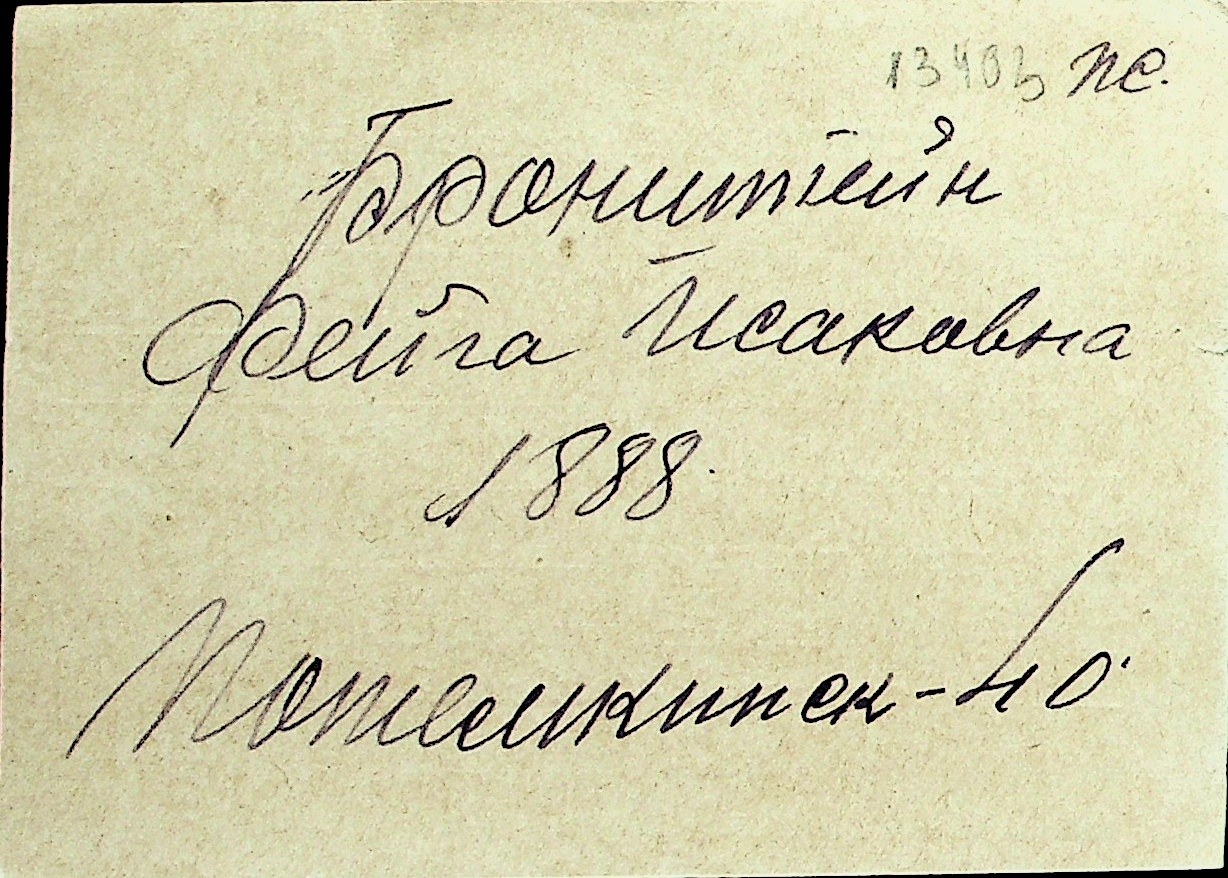 13403 пс.
Бронштейн
Фейга Исаковна
1888.
Потемкинск-40